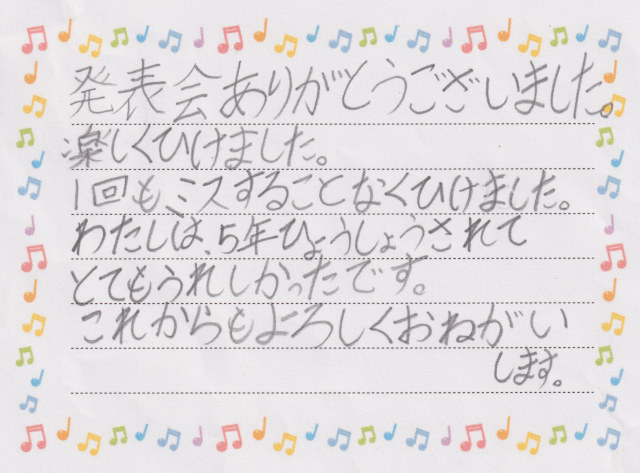 発表会ありがとうございました。
楽しくひけました。
1回もミスすることなくひけました。
わたしは、5年ひょうしょうされて
とてもうれしかったです。
これからもよろしくおねがい
します。